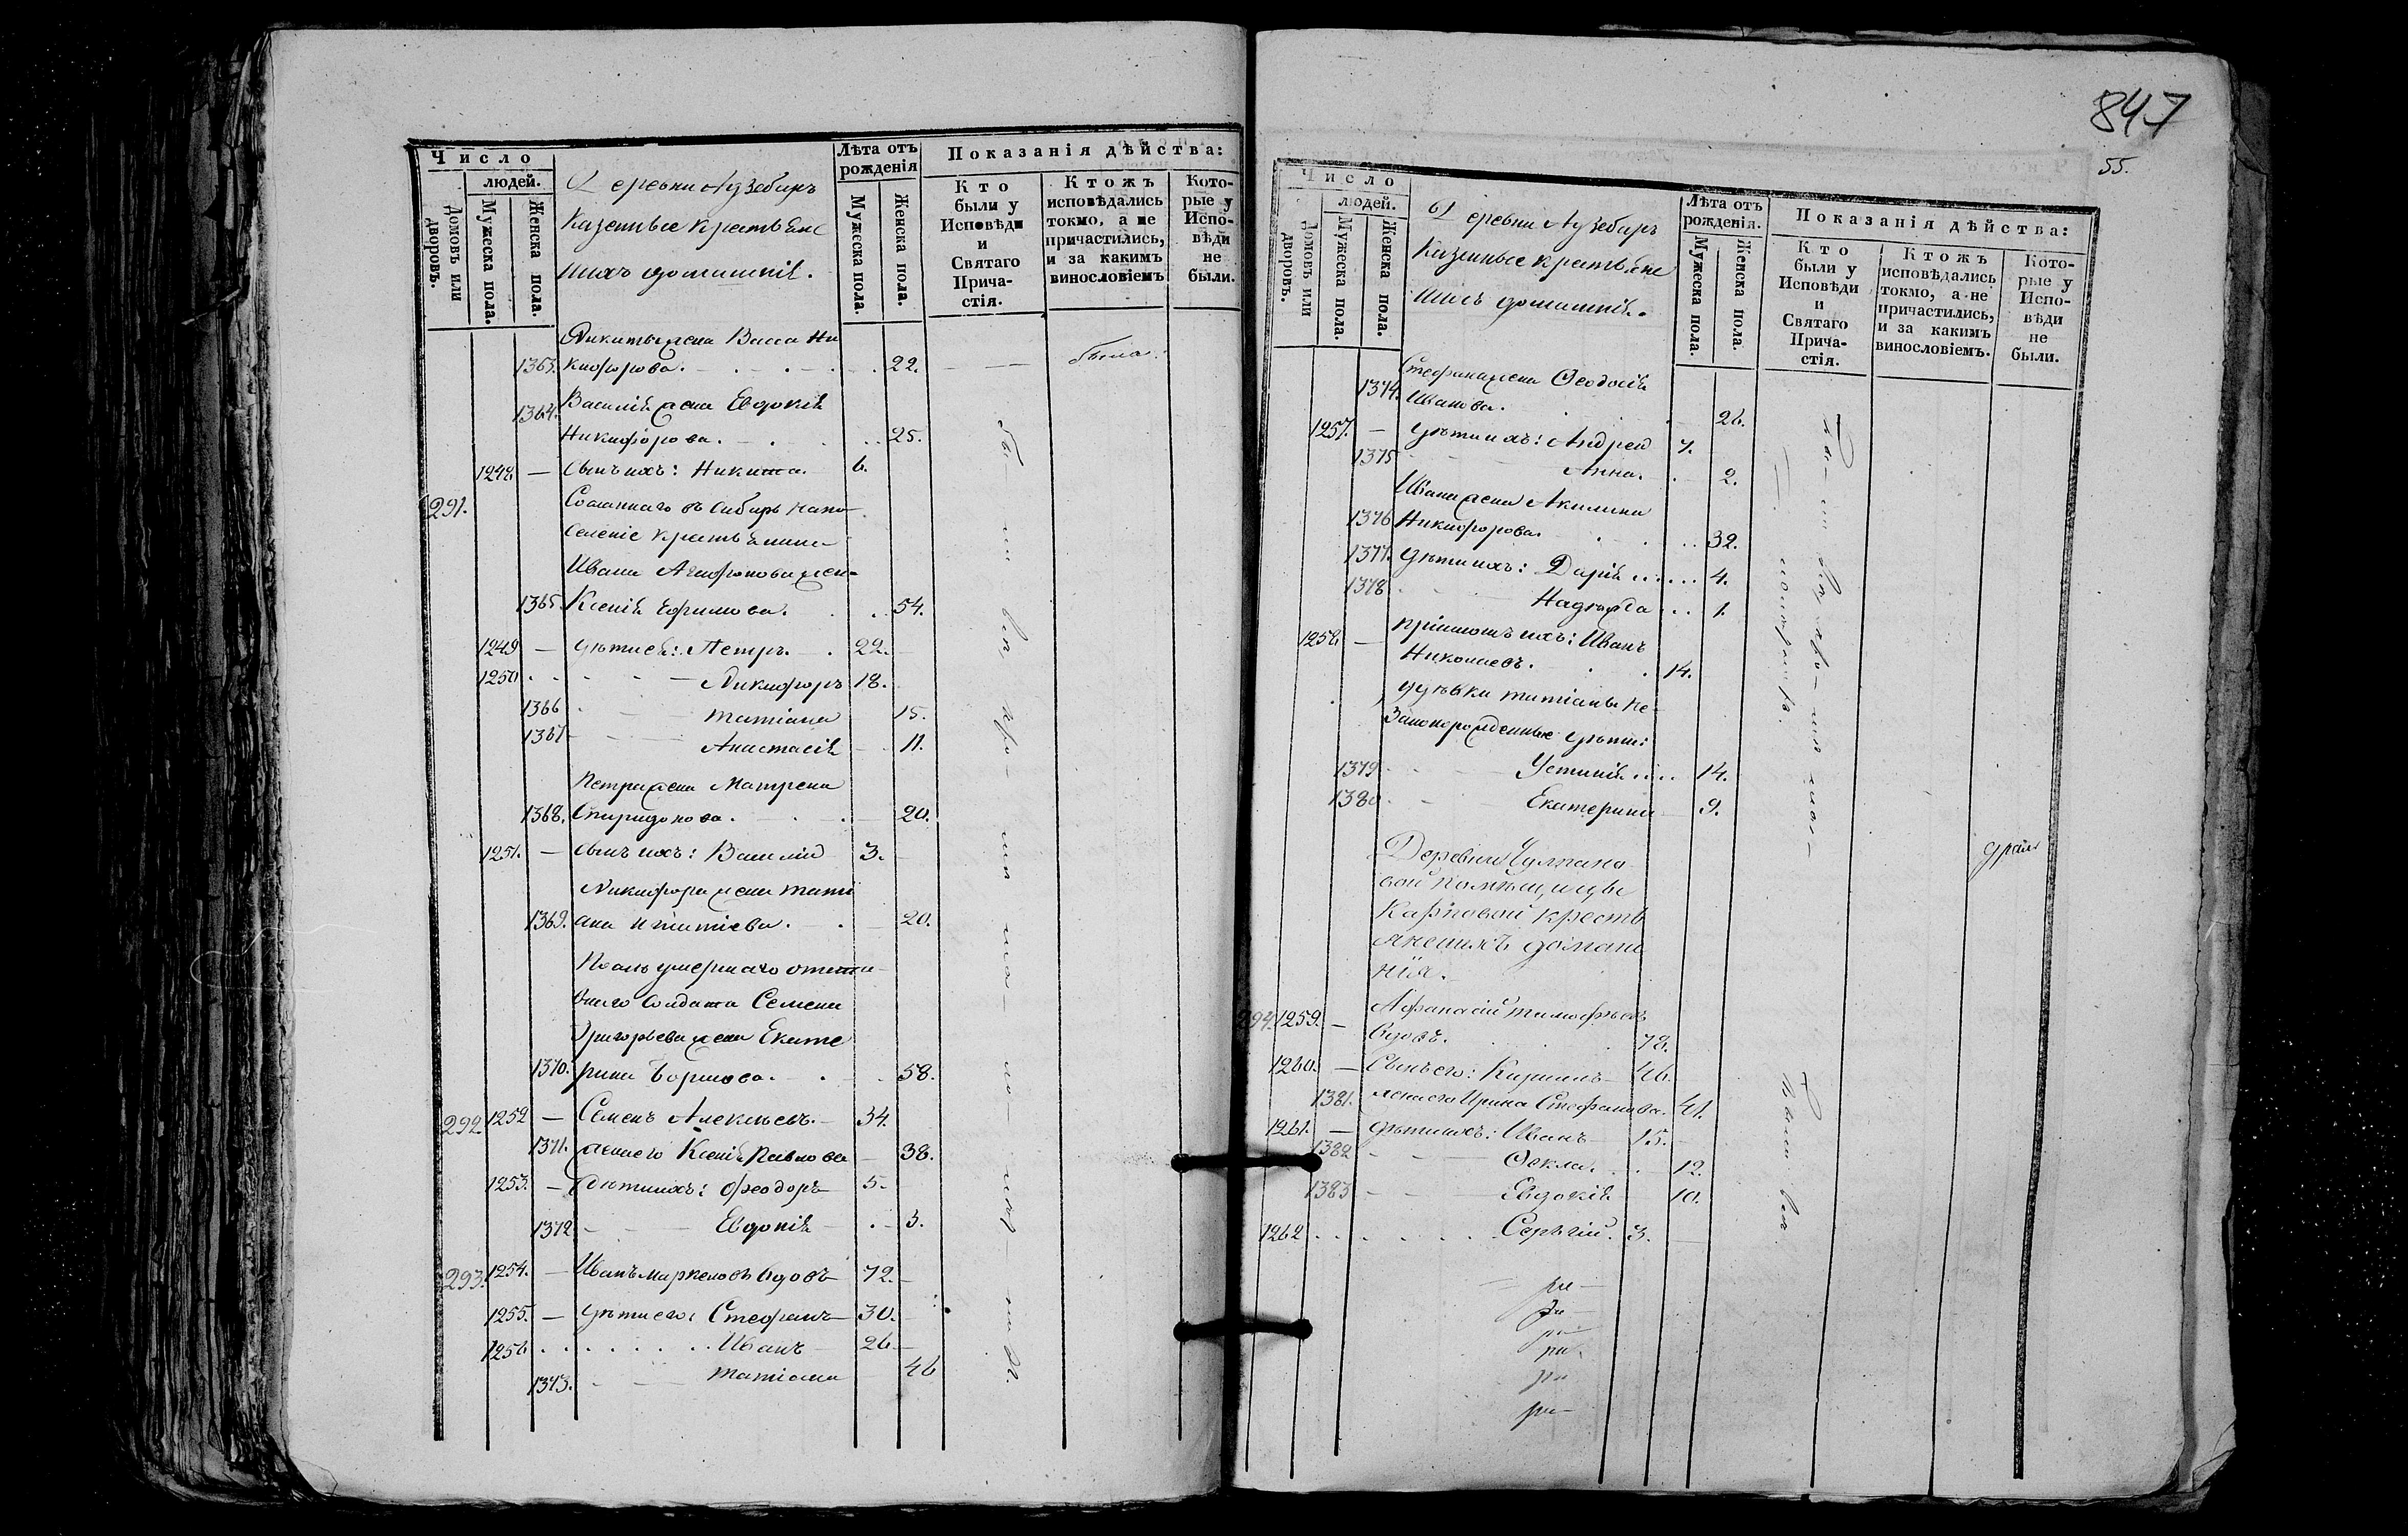 Число
людей.
Домовъ или дворовъ.
Мужеска пола.
Женска пола.
Деревни Аузебаръ
Казенные крестьяне
ихъ домашнія.
Лѣта отъ рожденія
Мужеска пола.
Женска пола.
Показанія дѣйства:
Кто были у Исповѣди и Святаго Прича-стія.
Ктожъ исповѣдались токмо, а не причастились, и за какимъ винословіемъ
Кото-рые у Испо-вѣди не были.
Никиты жена Васса Ни
1363. кифорова. 22. была.
1364. Василія жена Евдокія
Никифорова. 25.
1248 — сынъ ихъ: Никита. 6.
291. Сосланнаго въ Сибирь на по
селеніе крестьянина
Ивана Агафонова жена
1365. Ксенія Ефимова. 54.
1249 — дѣти ея: Петръ. 22.
1250 Никифоръ 18.
1366 Татіана 15.
1367 Анастасія 11.
Петра жена Матрена
1368. Спиридонова. 20.
1251. — сынъ ихъ: Василій 3.
Никифора жена Тати
1369. ана Игнатіева. 20.
Послѣ умершаго отста
внаго Солдата Семена
Григорьева жена Екате
1370. рина 58.
292. 1252 — Семенъ Алексѣевъ. 34.
1371. жена его Ксенія Павлова 38.
1253. — дѣти ихъ: Феодоръ 5.
1372 Евдокія 3.
293. 1254. — Иванъ Маркеловъ вдовъ 72.
1255. — дѣти его: Стефанъ 30.
1256 Иванъ 26
1373. Татіана 46
847
55.
Число
людей.
Домовъ или дворовъ.
Мужеска пола.
Женска пола.
Деревни Аузебаръ
Казенные крестьяне
ихъ домашнія.
Лѣта отъ рожденія.
Мужеска пола.
Женска пола.
Показанія дѣйства:
Кто были у Исповѣди и Святаго Прича-стія.
Ктожъ исповѣдались токмо, а не причастились, и за какимъ винословіемъ.
Кото-рые у Испо-вѣди не были.
Стефана жена Ѳеодосія
1374. Иванова. 26.
1257. — дѣти ихъ: Андрей 7.
1375 Анна. 2.
Ивана жена Акилина
1376 Никифорова. 32.
1377. дѣти ихъ: Дарія 4.
1378 Надежда 1.
1258 — пріемышъ ихъ: Иванъ
Николаевъ. 14.
У дѣвки Татіаны не
законорожденные дѣти:
1379 Устинія 14.
1380 Екатерина 9.
Деревни Чулпано
вой помѣщицы
Карповой кресть
яне ихъ домаш
нія.
294. 1259. — Афанасій Тимофѣевъ
вдовъ. 78.
1260. — Сынъ его: Кирилъ 46.
1381. жена его Ирина Стефанова. 41.
1261. — дѣти ихъ: Иванъ 15.
1382 Ѳекла. 12.
1383 Евдокія 10.
1262 Сергій. 3.